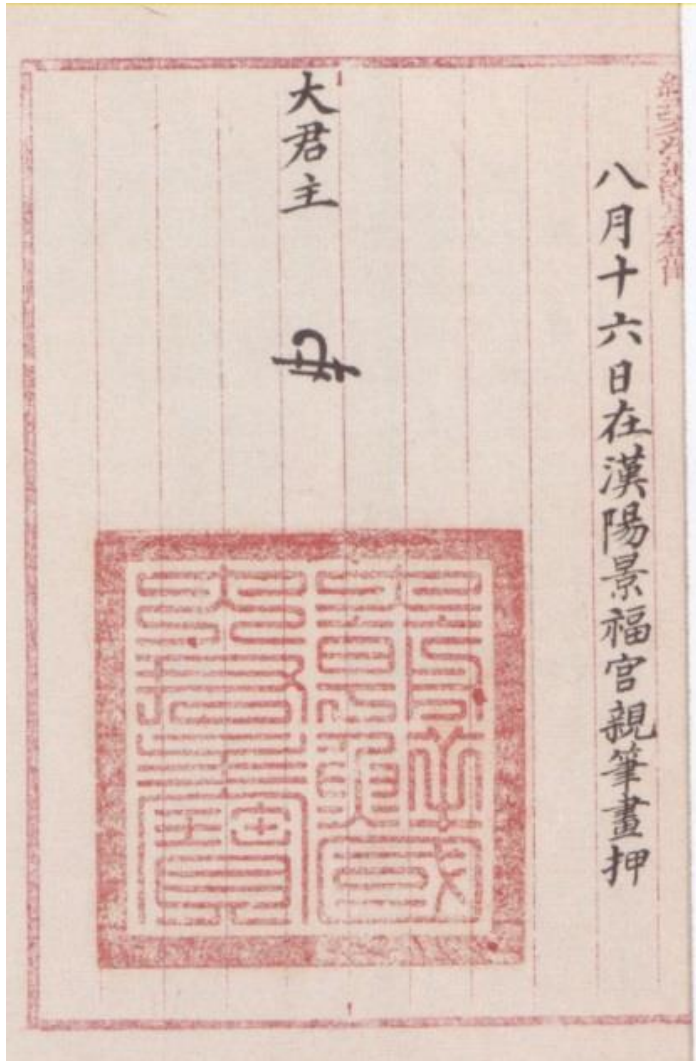 八月十六日在漢陽景福宮親筆畫押
大君主
大朝鮮國
大君主寶